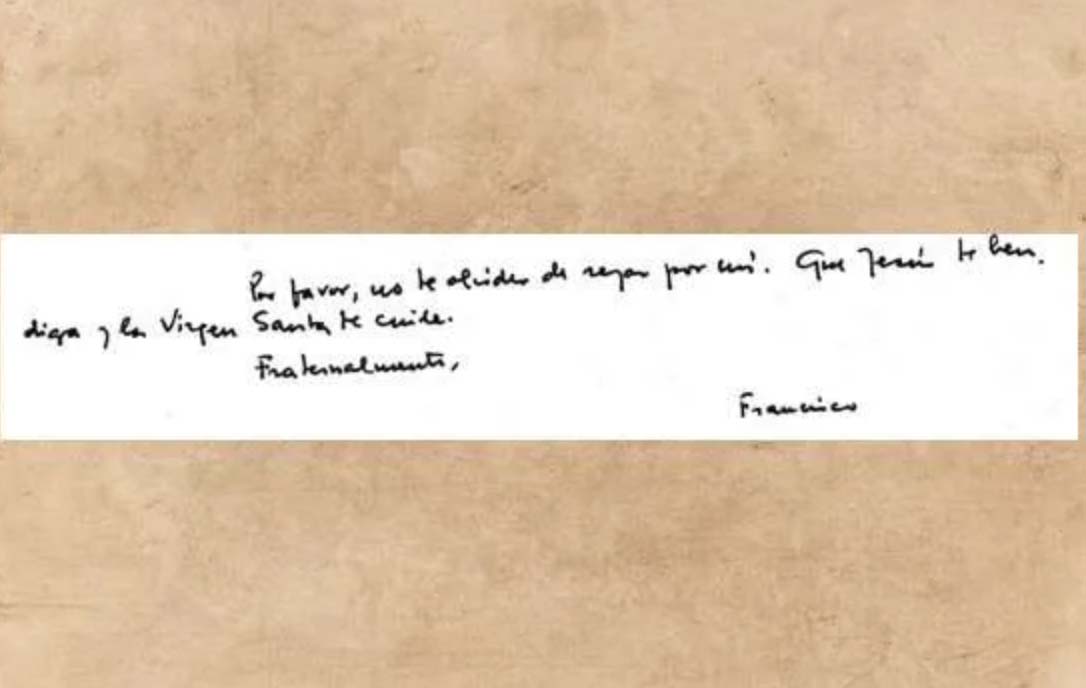 Por favor, no te olvides de rezar por mí. Que Jesús te ben-
diga y la Virgen Santa te cuide.
Fraternalmente,
Francisco